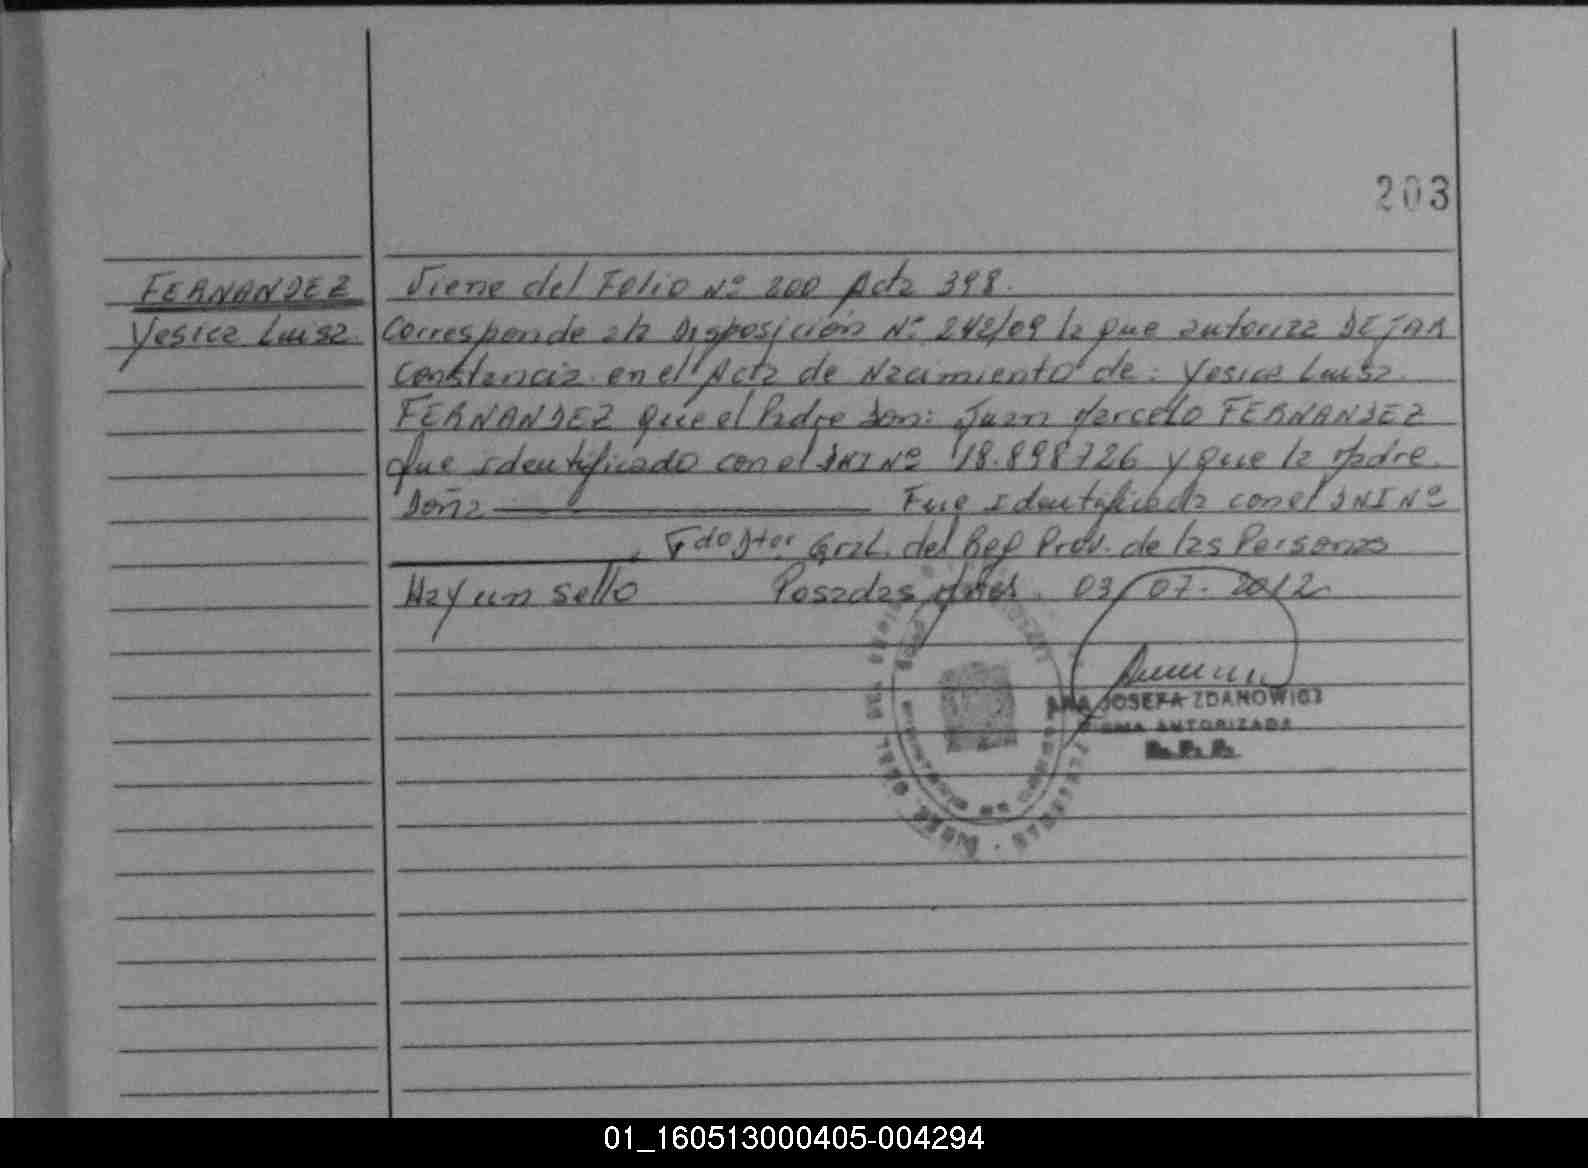 203
FERNANDEZ
Yesica Luisa.
Viene del Folio Nº 200 Acta 398.
Corresponde a la Disposición Nº 242/09 la que autoriza DEJAR
Constancia en el Acta de Nacimiento de: Yesica Luisa
FERNANDEZ que el Padre Don: Juan Marcelo FERNANDEZ
fue identificado con el DNI Nº 18.898726 y que la Madre.
Doña ———— Fue identificada con el DNI Nº
————, Fdo Dtor Gral. del Reg Prov. de las Personas
Hay un sello Posadas Mnes. 03/07-2012
ANA JOSEFA ZDANOWICZ
FIRMA AUTORIZADA
R. P. P.
01_160513000405-004294